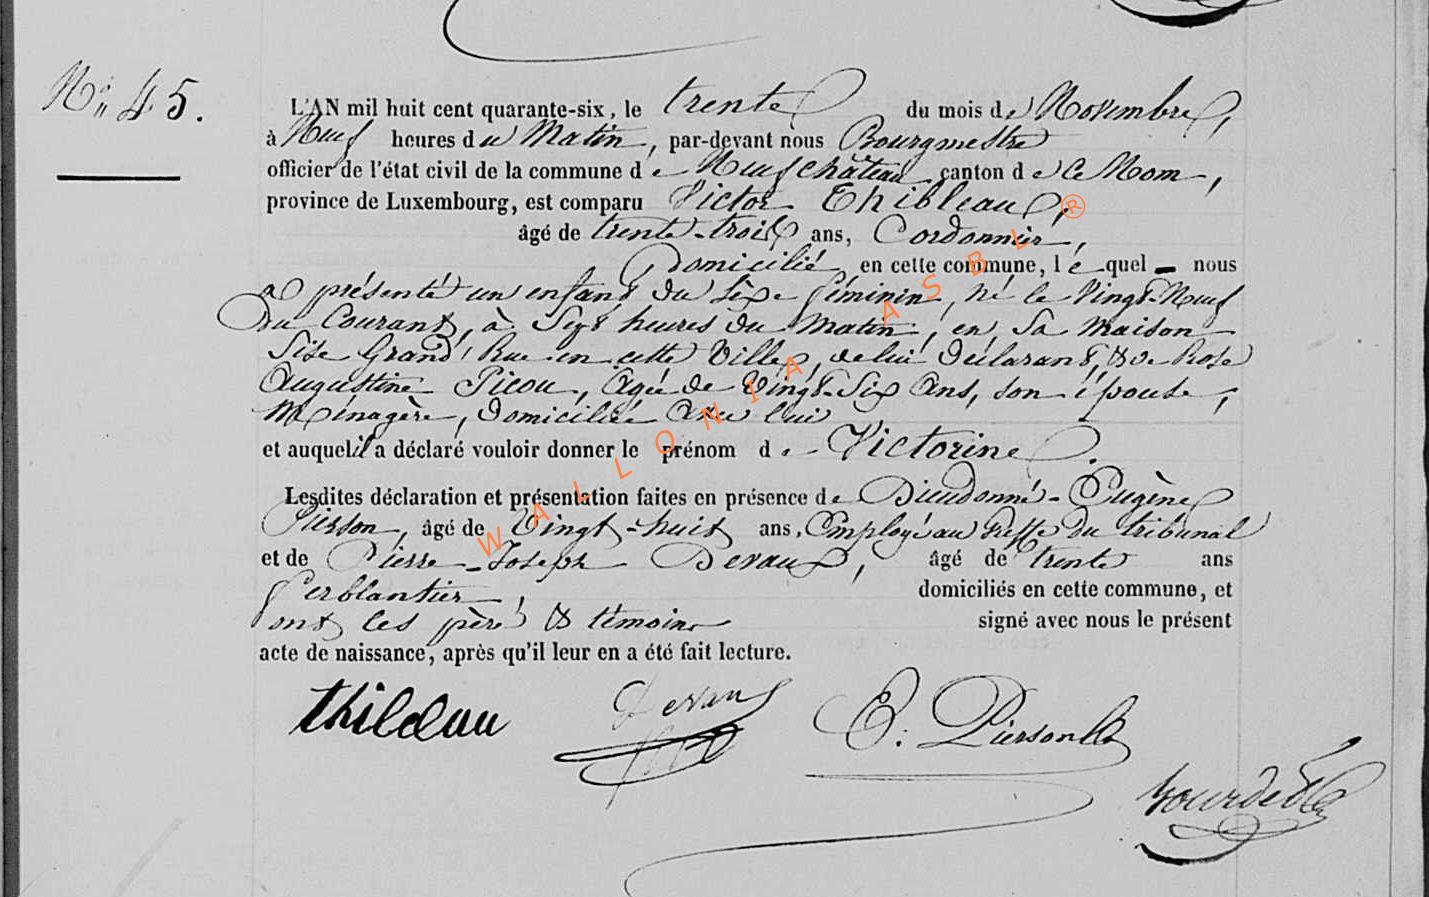 N° 45.
L'AN mil huit cent quarante-six, le trente du mois de Novembre,
à Neuf heures du Matin, par-devant nous Bourgmestre
officier de l'état civil de la commune de Neufchâteau canton de ce Nom,
province de Luxembourg, est comparu Victor Thibleau,
âgé de trente-trois ans, Cordonnier,
Domicilié en cette commune, lequel nous
a présenté un enfant du sèxe féminin, né le Vingt-Neuf
du Courant, à Sept heures du Matin, en Sa Maison
Sise Grand'Rue en cette Ville, de lui déclarant, & de Rose
Augustine Picou, âgée de Vingt-Six Ans, son épouse,
Ménagère, domiciliée avec lui
et auquel il a déclaré vouloir donner le prénom de Victorine.
Lesdites déclaration et présentation faites en présence de Dieudonné-Eugène
Pierson, âgé de Vingt-huit ans, Employé au Greffe du tribunal
et de Pierre-Joseph Devaux, âgé de trente ans
ferblantier, domiciliés en cette commune, et
ont les père & témoins signé avec nous le présent
acte de naissance, après qu'il leur en a été fait lecture.
thibleau Devaux E. Pierson
WALLONIA ASBL ®